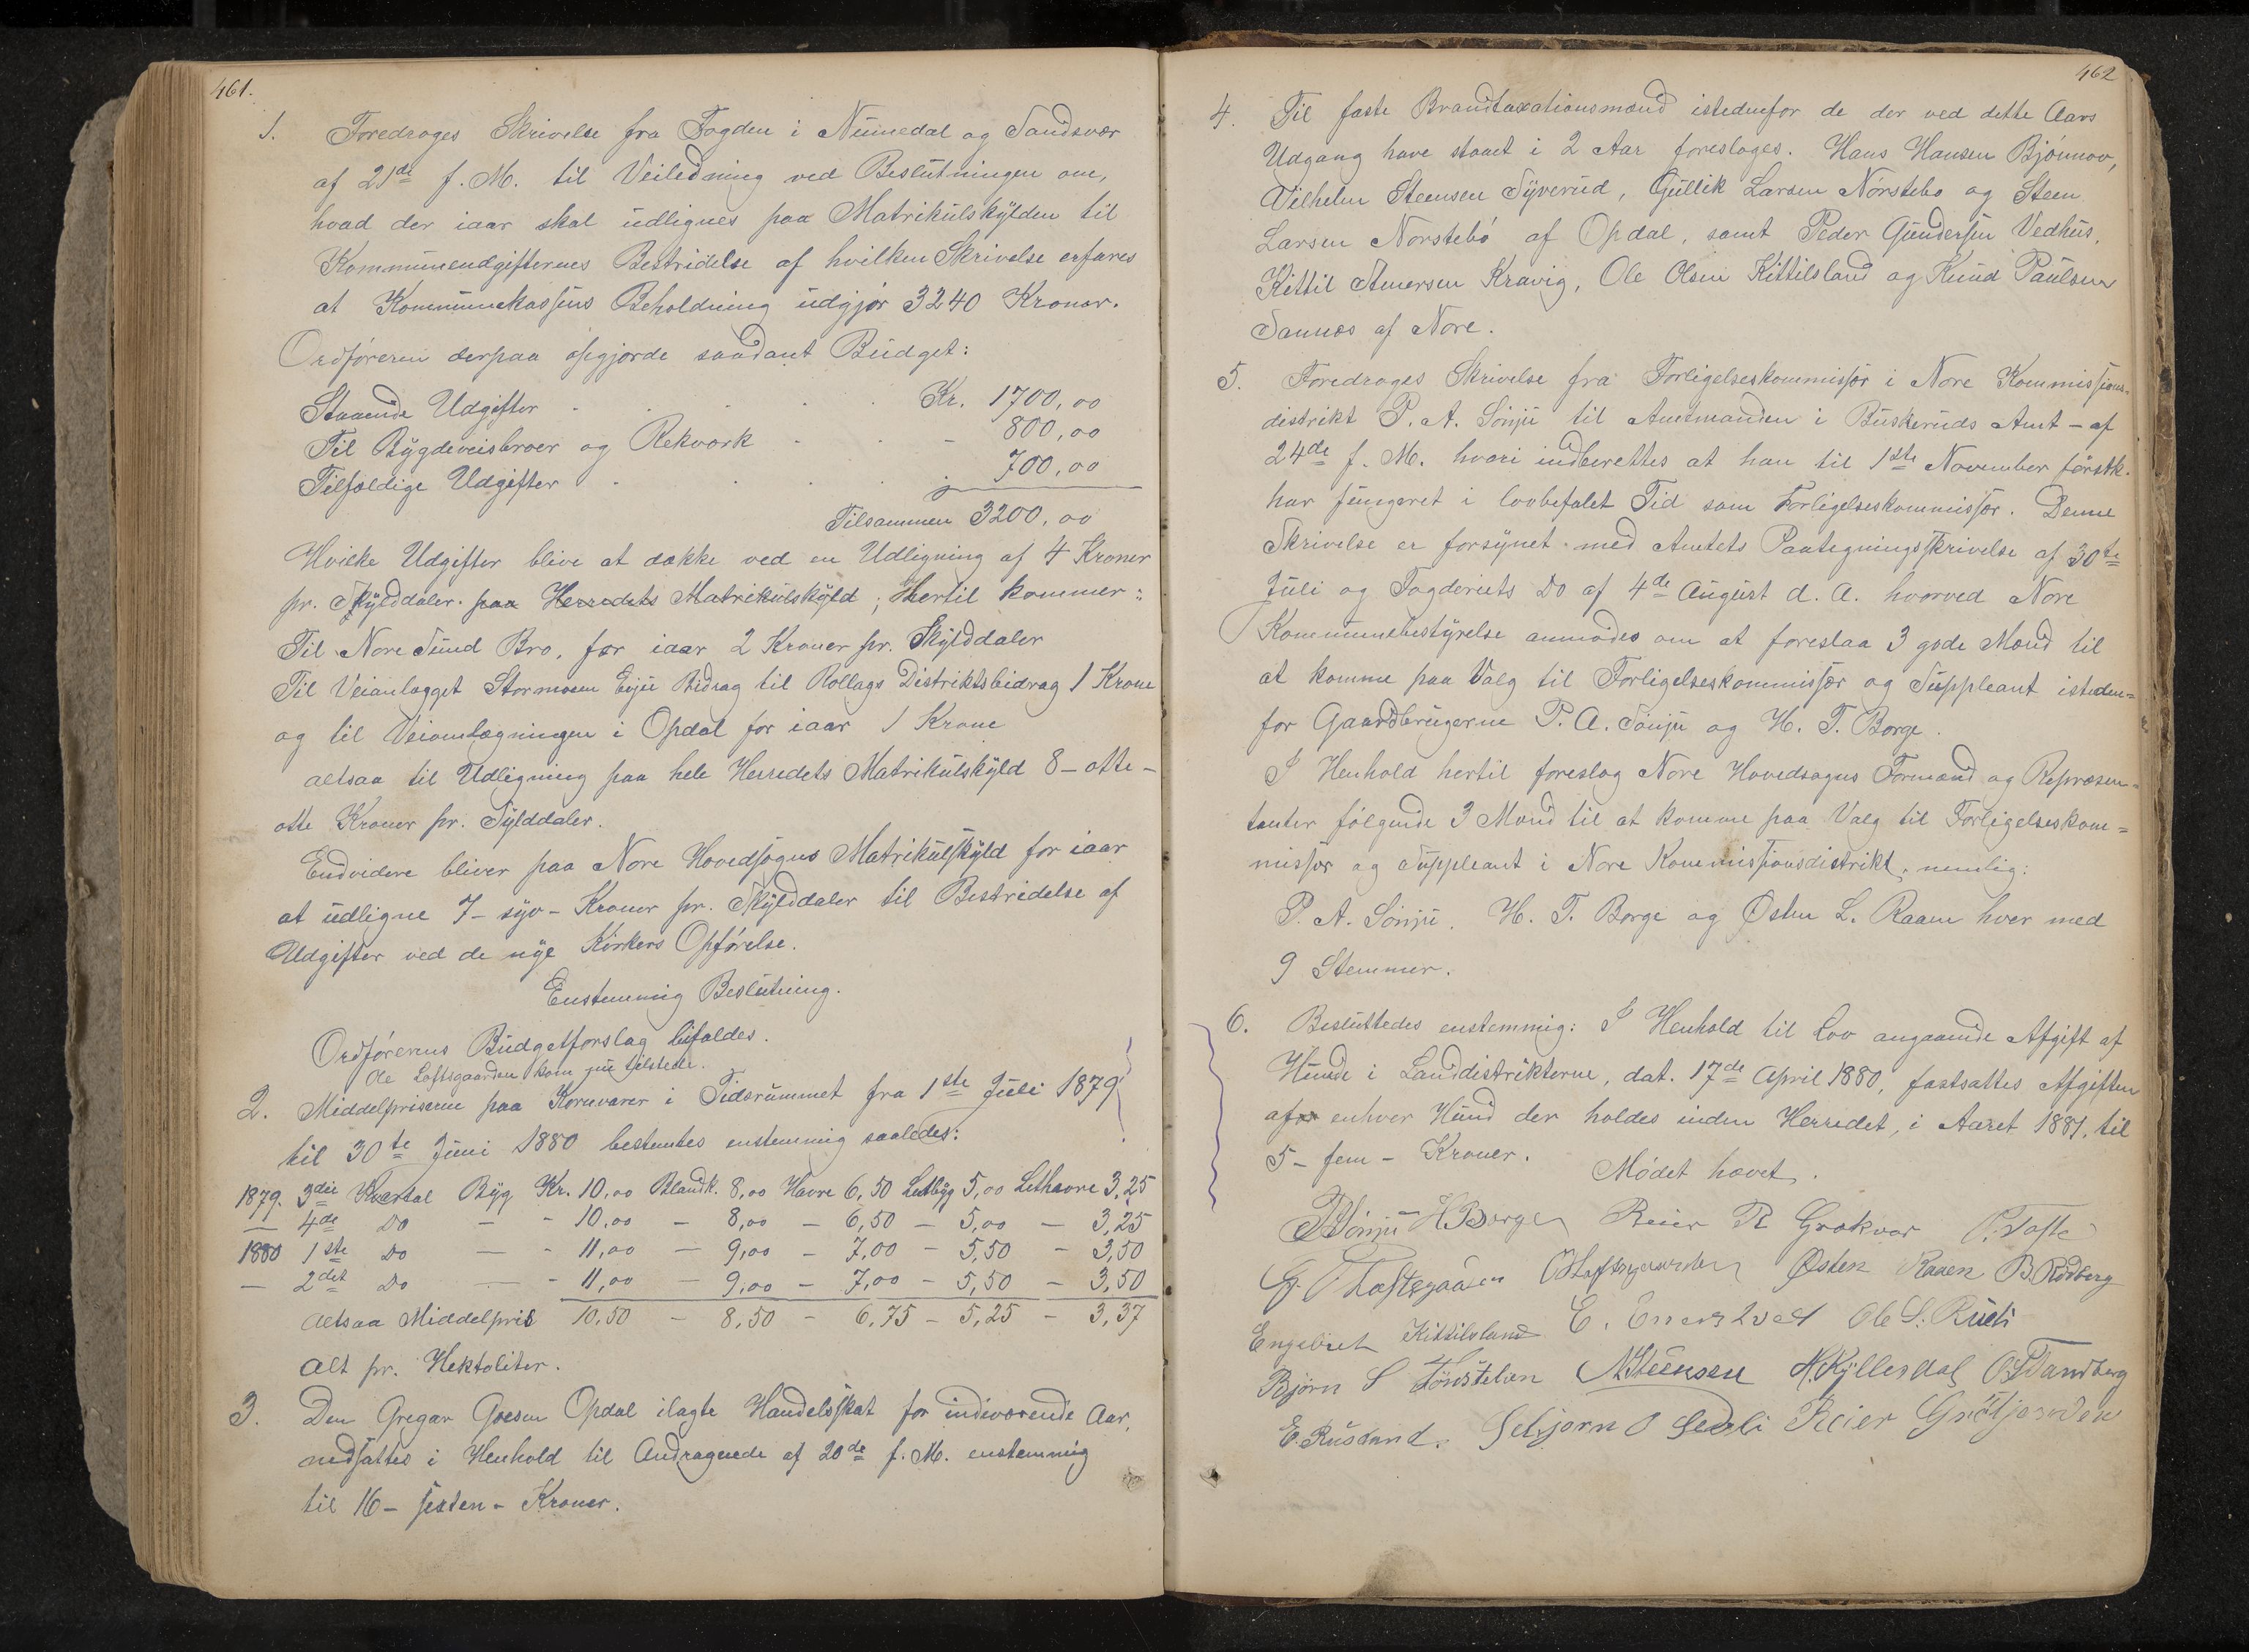 461.
1. Foredroges Skrivelse fra Fogden i Numedal og Sandsvær
af 21de f. M. til Veiledning ved Beslutningen om,
hvad der iaar skal udlignes paa Matrikulskylden til
Kommuneudgifternes Bestridelse af hvilken Skrivelse erfares
at Kommunekassens Beholdning udgjør 3240 Kroner.
Ordføreren derpaa opgjorde saadant Budget:
Staaende Udgifter Kr. 1700,00
Til Bygdeveisbroer og Rekværk - 800,00
Tilfældige Udgifter 700,00
Tilsammen 3200,00
Hvilke Udgifter blive at dække ved en Udligning af 4 Kroner
pr. Skylddaler. paa Herredets Matrikulskyld; Hertil kommer:
Til Nore Sund Bro, for iaar 2 Kroner pr. Skylddaler
Til Veianlægget Stormoen Evju Bidrag til Rollags Distriktsbidrag 1 Krone
og til Veiomlægningen i Opdal for iaar 1 Krone
altsaa til Udligning paa hele Herredets Matrikulskyld 8 - otte -
otte Kroner pr. Sylddaler.
Endvidere bliver paa Nore Hovedsogns Matrikulskyld for iaar
at udligne 7 - syv - Kroner pr. Skylddaler til Bestridelse af
Udgifter ved de nye Kirkers Opførelse.
Enstemmig Beslutning.
Ordførerens Budgetforslag bifaldes.
Ole Loftsgaarden kom nu tilstede.
2. Middelpriserne paa Kornvarer i Tidsrummet fra 1ste Juli 1879
til 30te Juni 1880 bestemtes enstemmig saaledes:
1879. 3die Kvartal Byg Kr. 10,00 Blandk. 8,00 Havre 6,50 Letbyg 5,00 Lethavre 3,25
— 4de Do — - 10,00 — 8,00 — 6,50 — 5,00 — 3,25
1880 1ste Do — - 11,00 — 9,00 - 7,00 - 5,50 - 3,50
— 2det Do — - 11,00 — 9,00 - 7,00 - 5,50 - 3,50
Altsaa Middelpris 10,50 - 8,50 - 6,75 - 5,25 - 3,37
Alt pr. Hektoliter.
3. Den Gregar Goesen Opdal ilagte Handelsskat for indeværende Aar,
nedsattes i Henhold til Andragende af 20de f. M. enstemmig
til 16 - sexten - Kroner.
462
4. Til faste Brandtaxationsmænd istedenfor de der ved dette Aars
Udgang have staaet i 2 Aar foresloges. Hans Hansen Bjönnov,
Vilhelm Steensen Syverud, Gullik Larsen Nørstebø og Steen
Larsen Nørstebö af Opdal, samt Peder Gundersen Vedhus,
Kittil Amersen Kravig, Ole Olsen Kittilsland og Knud Paulsen
Sannes af Nore.
5. Foredroges Skrivelse fra Forligelseskommissær i Nore Kommissions-
distrikt P. A. Sönju til Amtmanden i Buskeruds Amt - af
24de f. M. hvori indberettes at han til 1ste November förstk.
har fungeret i lovbefalet Tid som Forligelseskommissær. Denne
Skrivelse er forsynet med Amtets Paategningsskrivelse af 30te
Juli og Fogderiets Do af 4de August d. A. hvorved Nore
Kommunebestyrelse anmodes om at foreslaa 3 gode Mænd til
at komme paa Valg til Forligelseskommissær og Suppleant isteden=
for Gaardbrugerne P. A. Sönju og H. T. Borge.
I Henhold hertil foreslog Nore Hovedsogns Formænd og Repræsen=
tanter følgende 3 Mænd til at komme paa Valg til Forligelseskom=
missær og Suppleant i Nore Kommissionsdistrikt; nemlig:
P. A. Sönju. H. T. Borge og Østen L. Raaen hver med
9 Stemmer.
6. Besluttedes enstemmig: I Henhold til Lov angaaende Afgift af
Hunde i Landdistrikterne, dat. 17de April 1880, fastsattes Afgiften
af enhver Hund der holdes inden Herredet, i Aaret 1881, til
5 - fem - Kroner. Mödet hævet.
PSönju HBorge Reier R Grøkvor Tofte
G. T Loftsgaarden OLoftsgaarden Østen Raaen B. Rödberg
Engebret Kittilsland E. Enerstvedt Ole S. Rueli
Björn S Tönstelien NSteensen H. Kyllesdal Tandberg
E. Rusdand. Sebjørn O Skoli Reier Gr